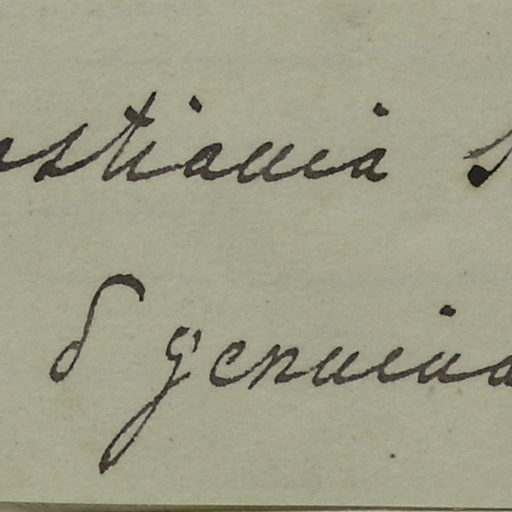 astiania s
δ genuina